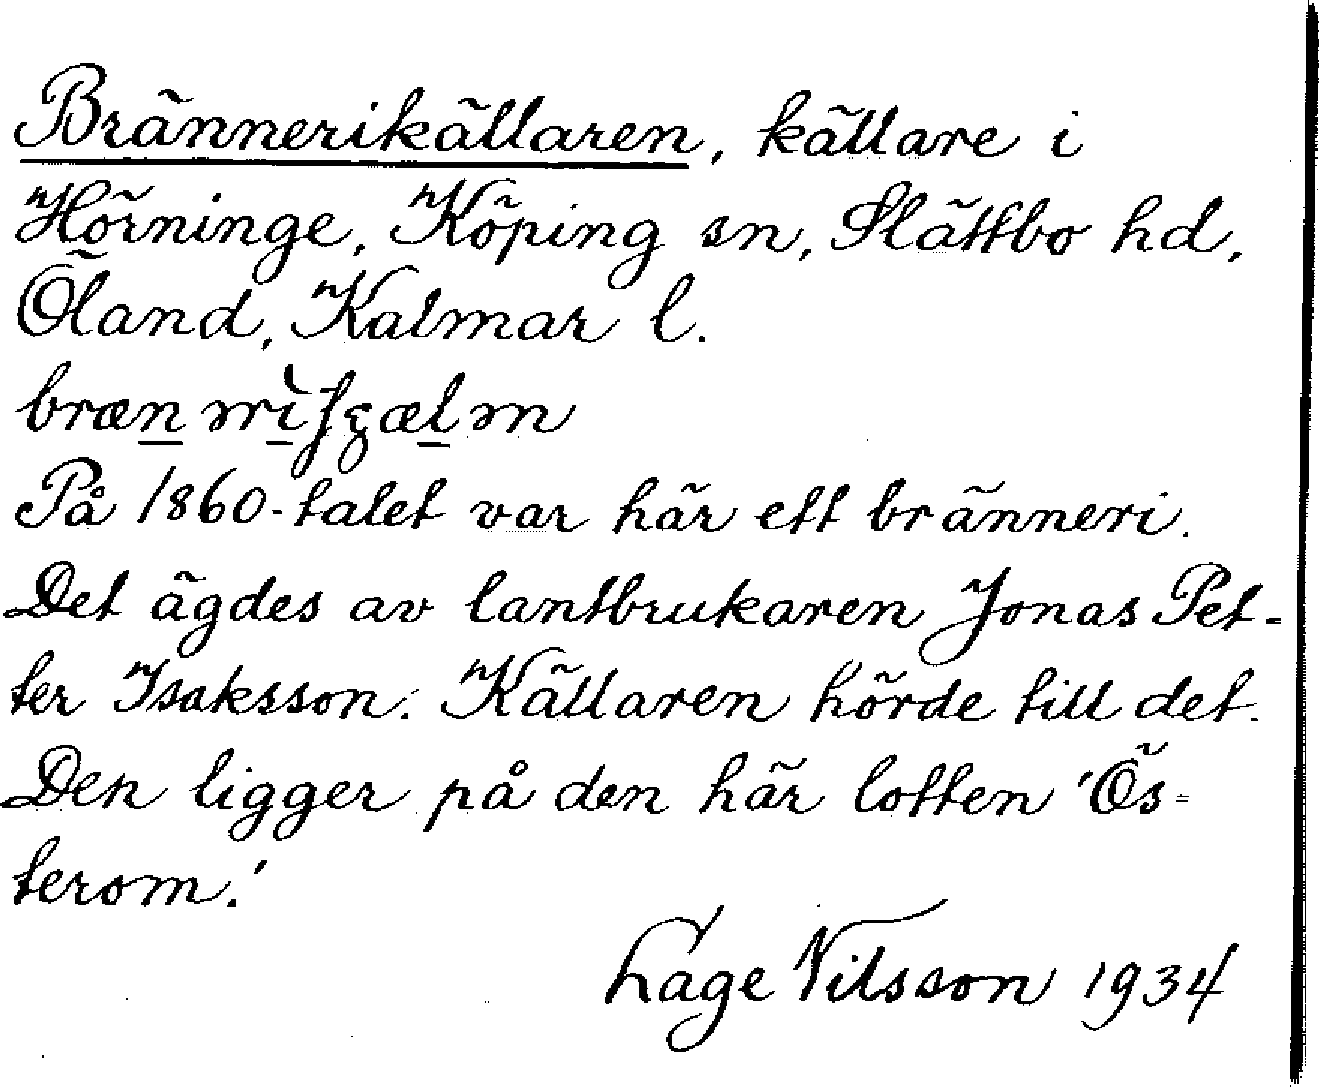 Brännerikällaren, källare i
Hörninge, Köping sn, Slättbo hd,
Öland, Kalmar l.
På 1860-talet var här ett bränneri.
Det ägdes av lantbrukaren Jonas Pet-
ter Isaksson. Källaren hörde till det.
Den ligger på den här lotten 'Ös-
terom.'
Lage Nilsson 1934